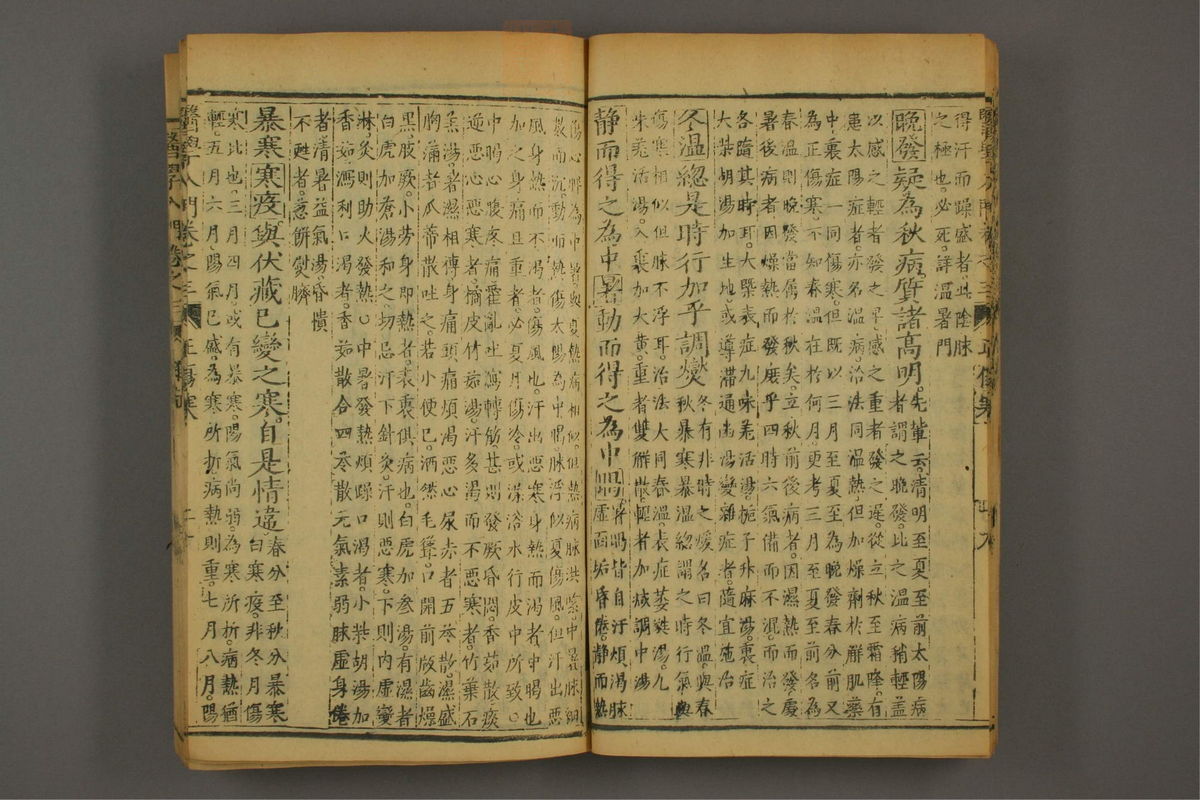 得汗而躁盛者此陰脉
之極也必死詳溫暑門
晚發疑為秋病質諸高明先輩云清明至夏至前太陽病
者謂之晚發比之溫病稍輕蓋
以感之輕者發之早感之重者發之遲從立秋至霜降有
患太陽症者亦名溫病治法同溫熱但加燥劑於解肌藥
中裏症一同傷寒但既以三月至夏至為晚發春分前又
為正傷寒不知春溫在於何月更考三月至夏至前名為
春溫則晚發當屬於秋矣立秋前後病者因濕熱而發處
暑後病者因燥熱而發庶乎四時六氣備而不混而治之
各隨其時耳大槩表症九味羌活湯梔子升麻湯裏症
大柴胡湯加生地或導滯通幽湯變雜症者隨宜施治
冬溫總是時行加乎調燮冬有非時之煖名曰冬溫與春
秋暴寒暴溫總謂之時行氣與
傷寒相似但脉不浮耳治法大同春溫表症葳蕤湯九
味羌活湯入裏加大黃重者雙解散輕者加减調中湯
靜而得之為中暑動而得之為中暍暑暍皆自汗煩渴脉
虛面垢昏倦靜而熱
傷心脾為中暑與夏熱病相似但熱病脉洪緊中暑脉細
而沉動而熱傷太陽為中暍脉浮似夏傷風但汗出惡
風身熱而不渴者傷風也汗出惡寒身熱而渴者中暍也
加之身痛且重者必夏月傷冷或澡浴水行皮中所致○
中暍心腹疼痛霍亂吐瀉轉筋甚則發厥昏悶香茹散痰
逆惡心惡寒者橘皮竹茹湯汗多渴而不惡寒者竹葉石
羔湯暑濕相傳身痛頭痛煩渴惡心尿赤者五苓散濕盛
胸滿者瓜蒂散吐之若小便已洒然毛聳口開前板齒燥
黑肢厥小勞身即熱者表裏俱病也白虎加參湯有濕者
白虎加蒼湯和之切忌汗下針灸汗則惡寒下則內虛變
淋灸則助火發熱○中暑發熱煩躁口渴者小柴胡湯加
香茹瀉利口渴者香茹散合四苓散元氣素弱脉虛身倦
者清暑益氣湯昏憒
不甦者蒽餅熨臍
暴寒寒疫與伏藏已變之寒自是情違春分至秋分暴寒
曰寒疫非冬月傷
寒比也三月四月或有暴寒陽氣尚弱為寒所折病熱猶
輕五月六月陽氣已盛為寒所折病熱則重七月八月陽
醫學入門卷之三 正傷寒 二十